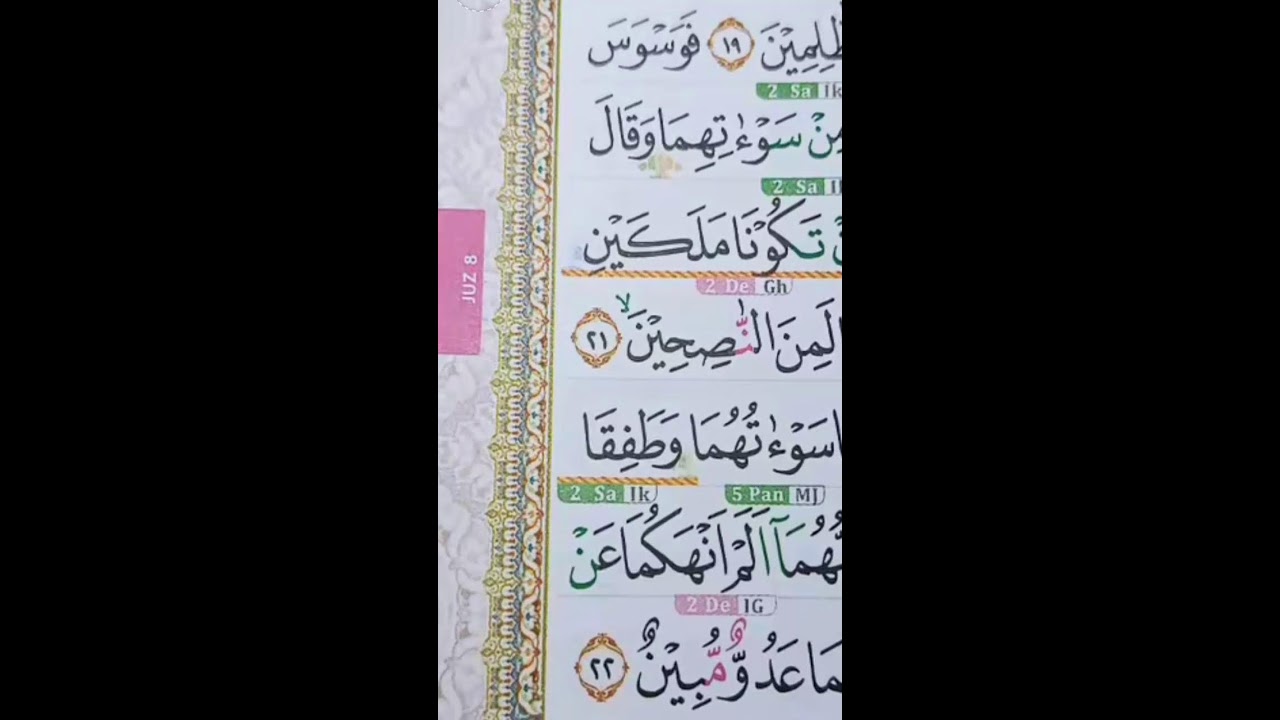 ظّٰلِمِيْنَ ١٩ فَوَسْوَسَ
2 Sa Ik
مِنْ سَوْءٰتِهِمَا وَقَالَ
2 Sa
تَكُوْنَا مَلَكَيْنِ
2 De Gh
لَمِنَ النّٰصِحِيْنَۙ ٢١
سَوْءٰتُهُمَا وَطَفِقَا
5 Pan MJ 2 Sa Ik
هُمَآ اَلَمْ اَنْهَكُمَا عَنْ
2 De IG
مَا عَدُوٌّ مُّبِيْنٌ ٢٢
JUZ 8